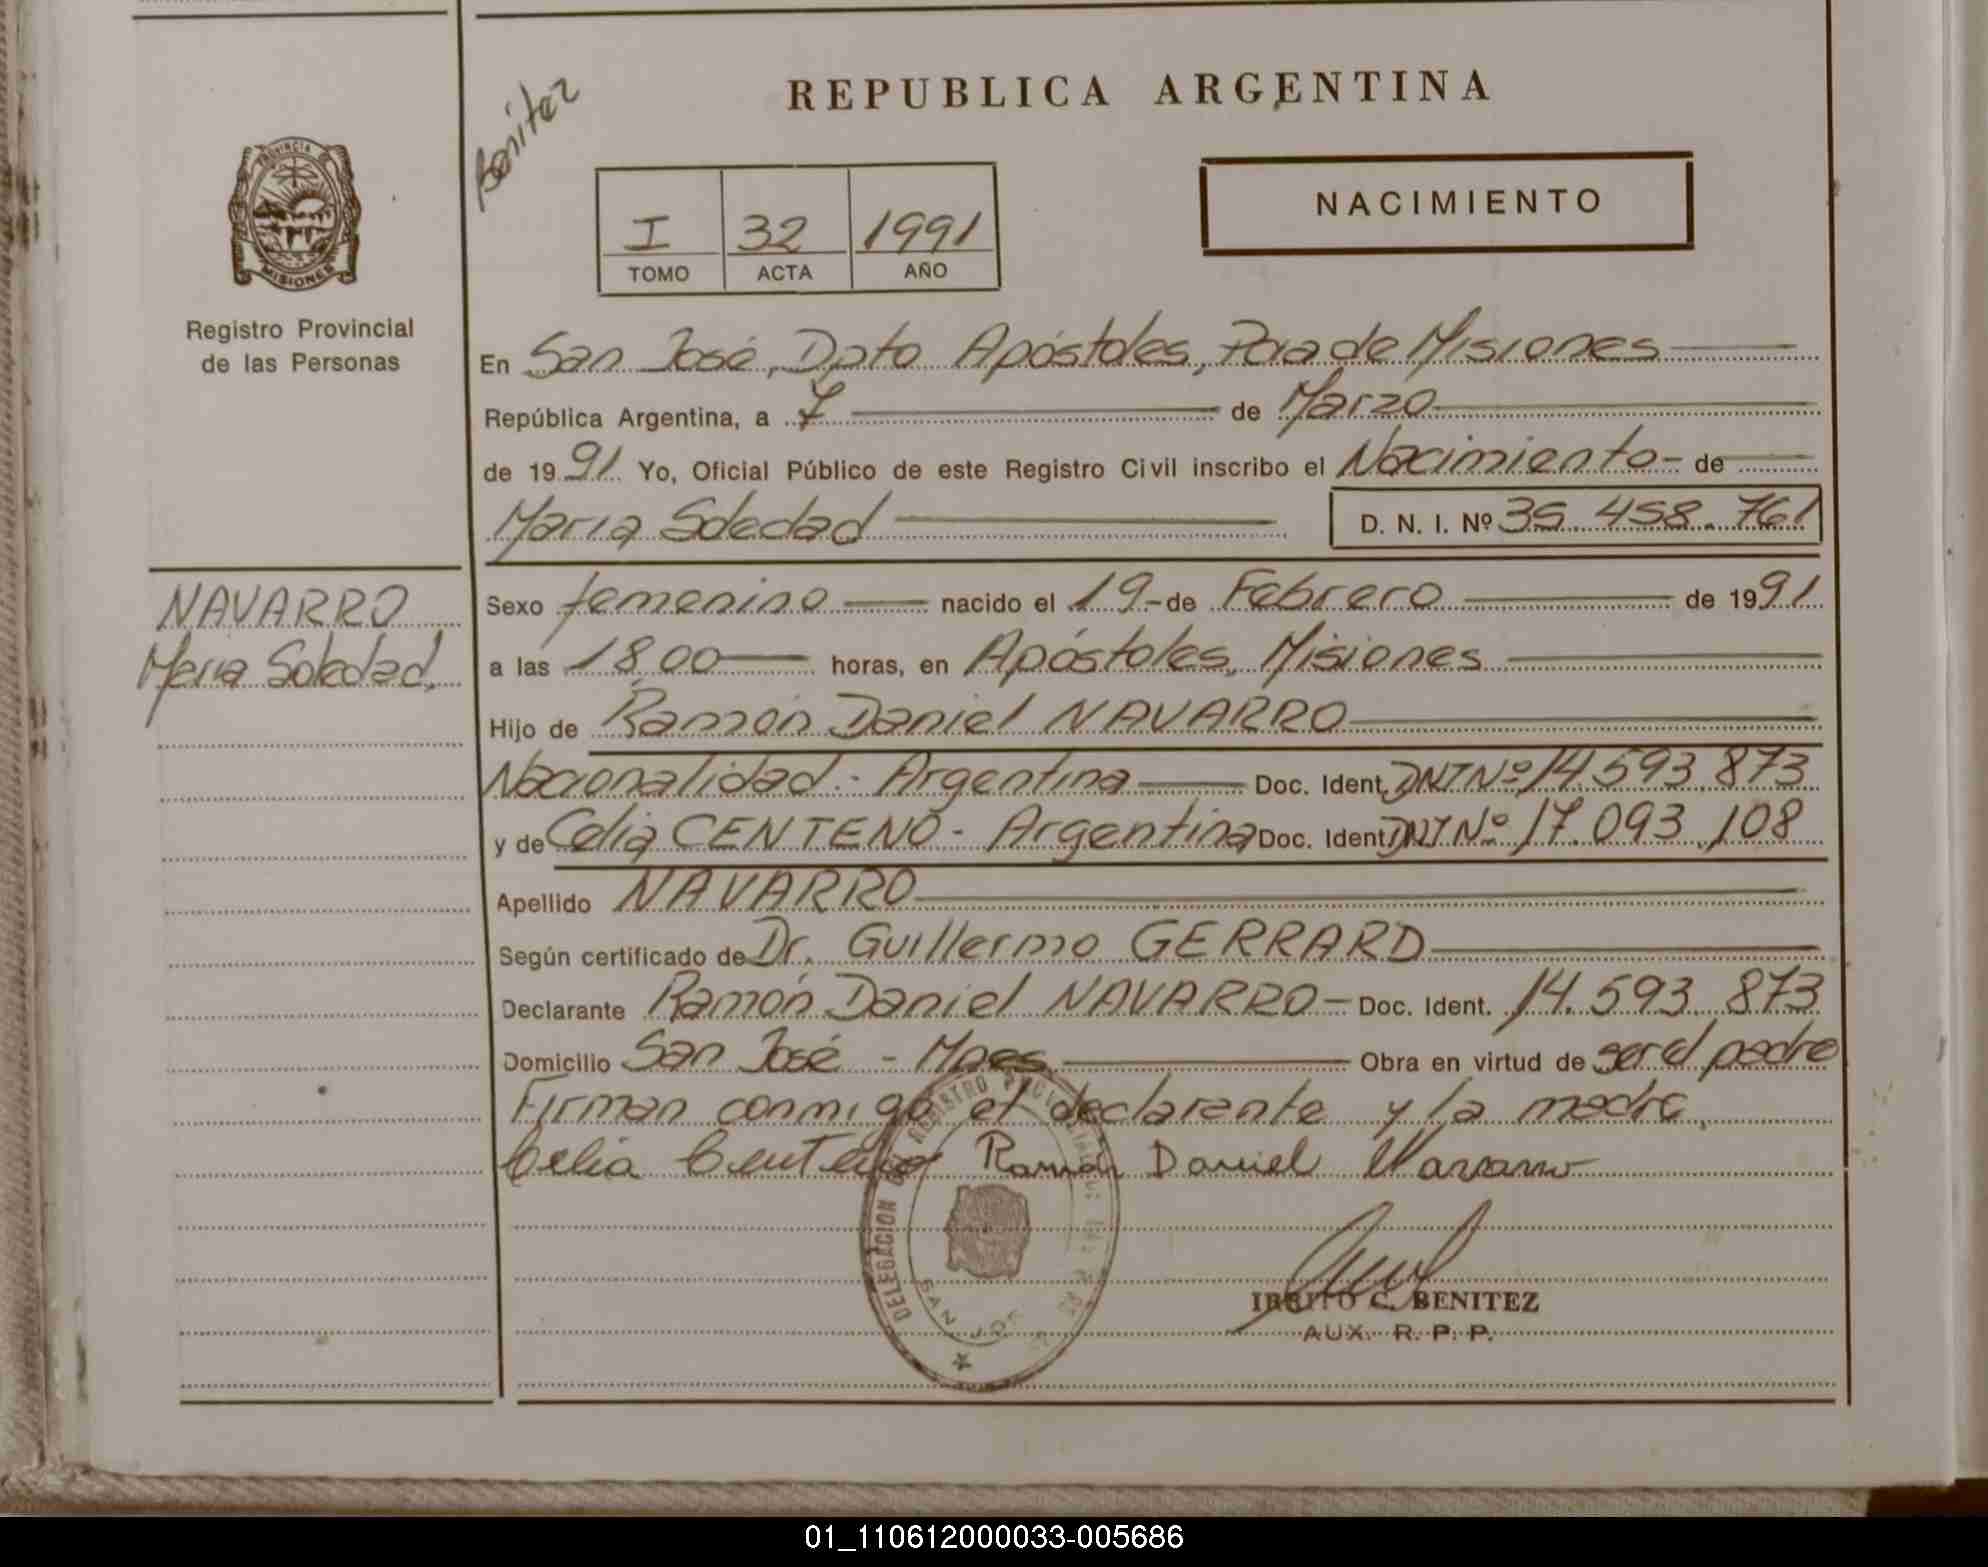 REPUBLICA ARGENTINA
Benitez
NACIMIENTO
I 32 1991
TOMO ACTA AÑO
PROVINCIA DE MISIONES
Registro Provincial
de las Personas
En San José, Dpto Apóstoles, Pcia de Misiones
República Argentina, a 7 de Marzo
de 1991. Yo, Oficial Público de este Registro Civil inscribo el Nacimiento - de
María Soledad D. N. I. Nº 35.458.761
NAVARRO
María Soledad.
Sexo femenino nacido el 19 - de Febrero de 1991
a las 18,00 horas, en Apóstoles, Misiones
Hijo de Ramón Daniel NAVARRO
Nacionalidad: Argentina Doc. Ident. DNI Nº 14.593.873
y de Celia CENTENO - Argentina Doc. Ident. DNI Nº 17.093.108
Apellido NAVARRO
Según certificado de Dr. Guillermo GERRARD
Declarante Ramón Daniel NAVARRO - Doc. Ident. 14.593.873
Domicilio San José - Mnes Obra en virtud de ser el padre
Firman conmigo el declarante y la madre.
Celia Centeno Ramón Daniel Navarro
DELEGACION REGISTRO PROVINCIAL DE LAS
SAN JOSE
C. BENITEZ
AUX. R. P. P.
01_110612000033-005686